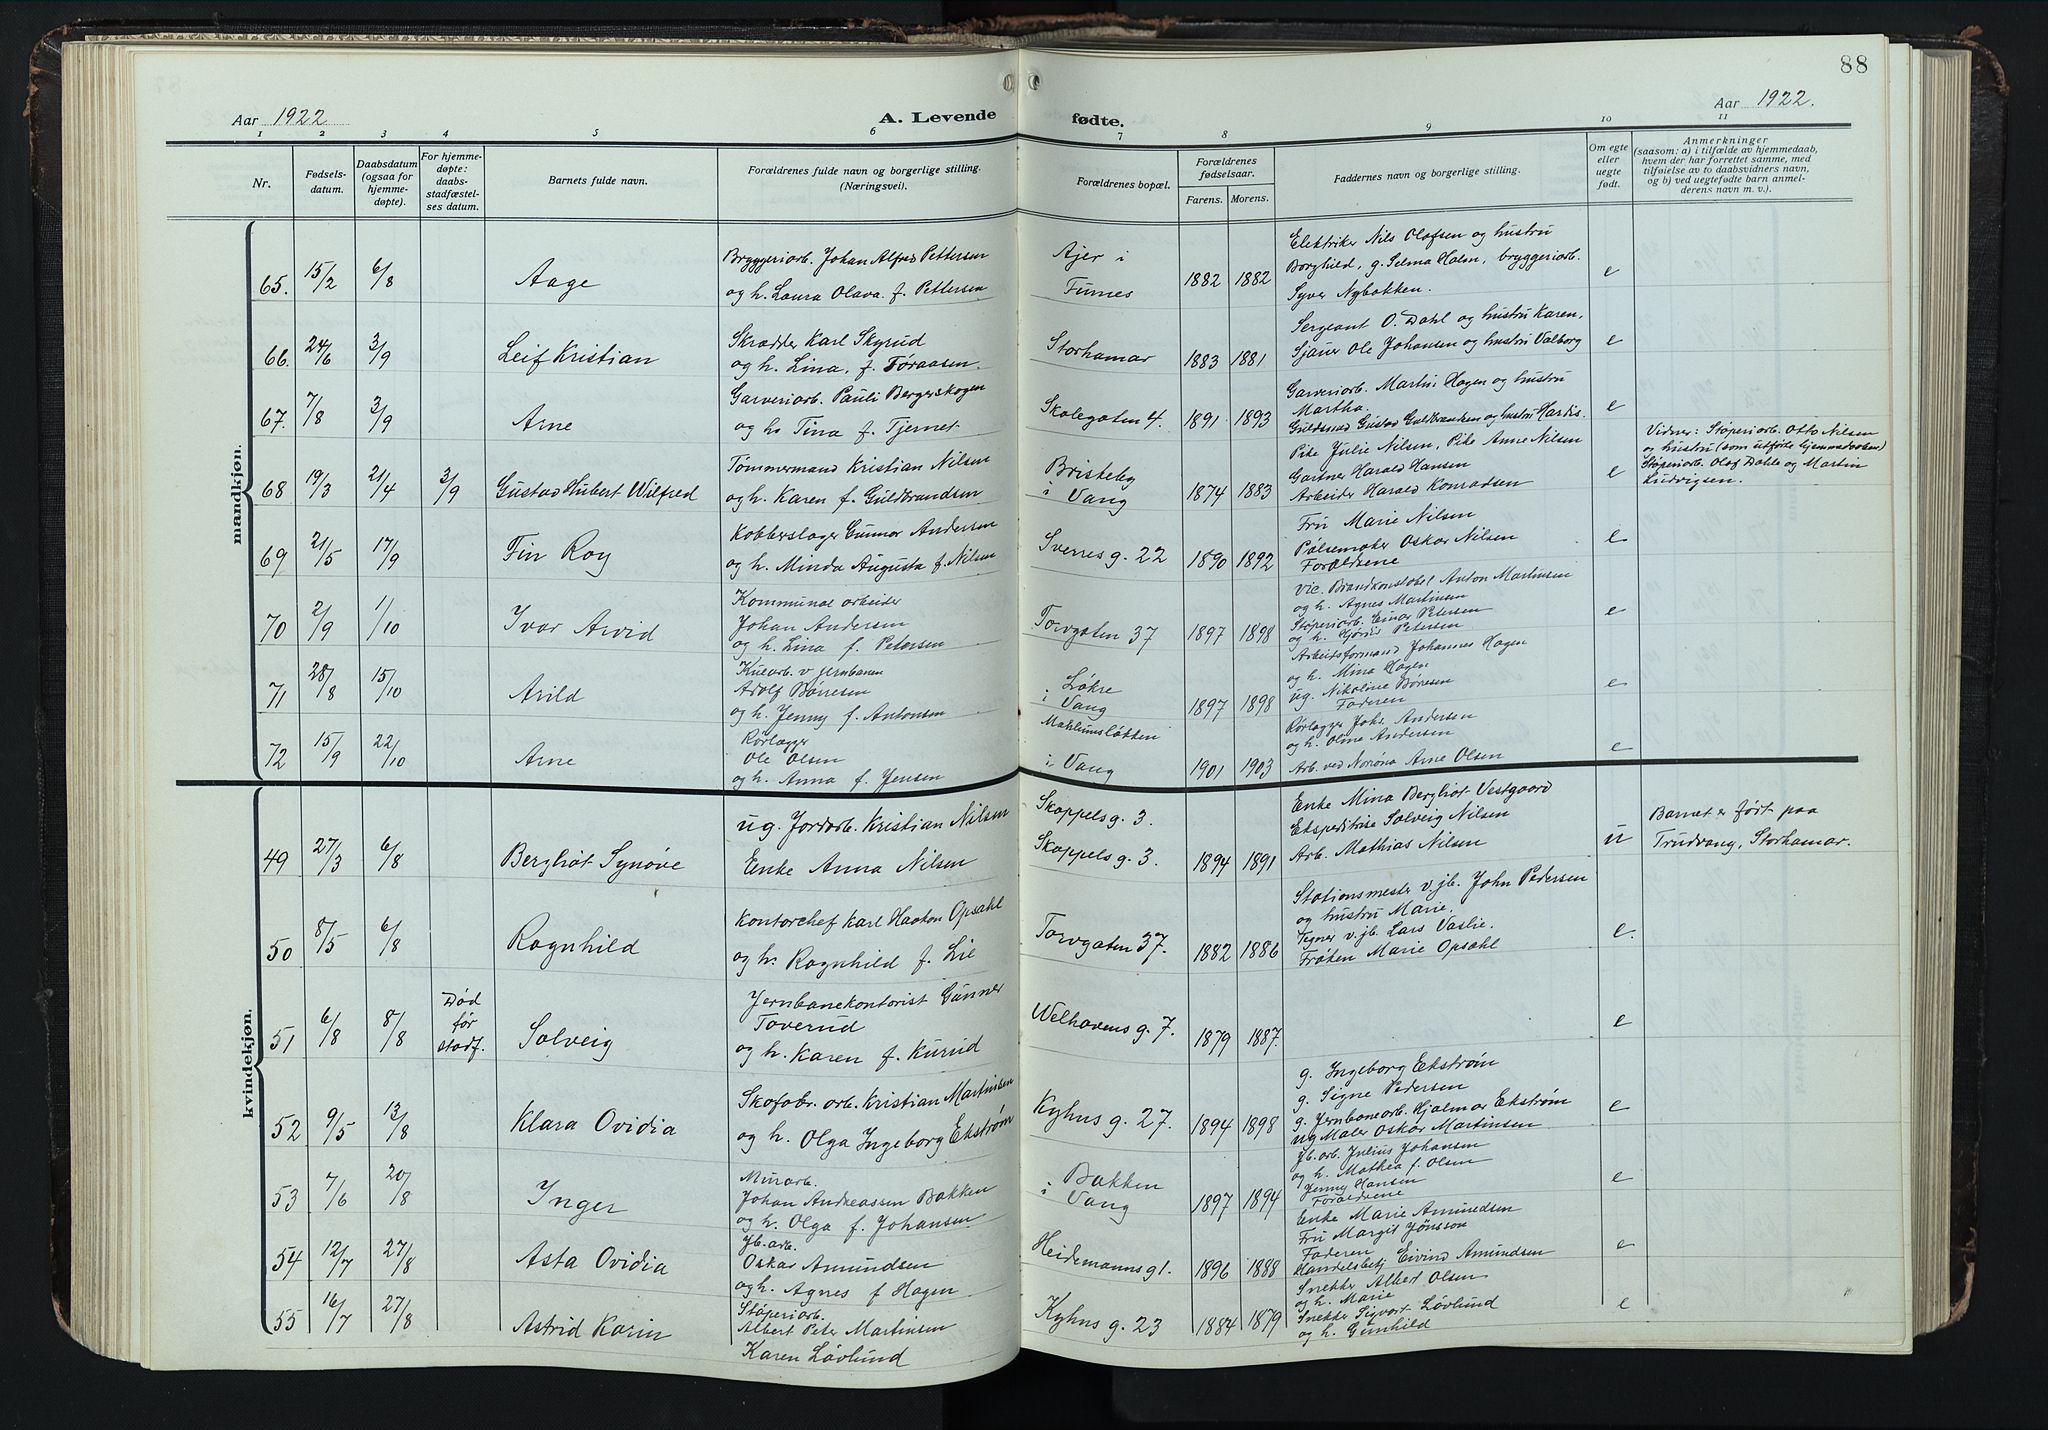 88
Aar 1922
A. Levende
fødte.
Aar 1922.
1 2 3 4 5 6 7 8 9 10 11
Nr.
Fødsels-
datum.
Daabsdatum
(ogsaa for
hjemme-
døpte).
For hjemme-
døpte:
daabs-
stadfæstel-
ses datum.
Barnets fulde navn.
Forældrenes fulde navn og borgerlige stilling.
(Næringsvei).
Forældrenes bopæl.
Forældrenes
fødselsaar.
Farens. Morens.
Faddernes navn og borgerlige stilling.
Om egte
eller
uegte
født.
Anmerkninger
(saasom: a) i tilfælde av hjemmedaab,
hvem der har forrettet samme, med
tilføielse av to daabsvidners navn,
og b) ved uegtefødte barn anmel-
derens navn m. v.).
mandkjøn.
65. 15/2 6/8 Aage
Bryggeriarb. Johan Alfred Pettersen
og h. Laura Olava f. Pettersen
Ajer i
Furnes
1882 1882
Elektriker Nils Olafsen og hustru
Borghild, g. Selma Holm, bryggeriarb.
Syver Nybakken.
e
66. 24/6 3/9 Leif Kristian
Skrædder Karl Skyrud
og h. Lina, f. Føraasen.
Storhamar
1883 1881
Sergeant O. Dahl og hustru Karen,
Sjauer Ole Johansen og hustru Valborg
e
67. 7/8 3/9 Arne
Garveriarb. Pauli Bergerskogen
og h. Tina f. Tjernet
Skolegaten 4.
1891 1893
Garveriarb. Martin Hagen og hustru
Martha.
Guldsmed Gustav Guldbrandsen og hustru Hardis.
e
68 19/3 21/4 3/9 Gustav Hubert Wilfred
Tømmermand Kristian Nilsen
og h. Karen f. Guldbrandsen
Bristeby
i Vang
1874 1883
Pike Julie Nilsen, Pike Anne Nilsen
Gartner Harald Hansen
Arbeider Harald Konradsen
e
Vidner: Støperiarb. Otto Nilsen
og hustru (som utførte hjemmedaaben)
Støperiarb. Olaf Dahle og Martin
Ludvigsen.
69 21/5 17/9 Fin Roy
Kobberslager Gunnar Andersen
og h. Minda Augusta f. Nilsen
Sverres g. 22
1890 1892
Fru Marie Nilsen
Pølsemaker Oskar Nilsen
Forældrene
e
70 2/9 1/10 Ivar Arvid
Kommunal arbeider
Johan Andersen
og h. Lina f. Petersen
Torvgaten 37
1897 1898
Vic. Brandkonstabel Anton Martinsen
og h. Agnes Martinsen
Støperiarb. Einar Petersen
og h. Hjørdis Petersen
e
71 28/8 15/10 Arild
Kularb. v jernbanen
Adolf Børresen
og h. Jenny f. Antonsen
Løkre
i Vang
1897 1898
Arbeidsformand Johannes Hagen
og h. Mina Hagen
ug. Nikoline Børresen
Faderen
e
72 15/9 22/10 Arne
Rørlægger
Ole Olsen
og h. Anna f. Jensen
Mæhlumsløkken
i Vang
1901 1903
Rørlægger Johs. Andersen
og h. Oline Andersen
Arb. ved Norøna Arne Olsen
e
kvindekjøn.
49 27/3 6/8 Bergliot Synøve
ug. Jordarb. Kristian Nilsen
Enke Anna Nilsen
Skappels g. 3.
Skappels g. 3.
1894 1891
Enke Mina Bergliot Vestgaard
Ekspeditrise Solveig Nilsen
Arb. Mathias Nilsen
u
Barnet er født paa
Trudvang, Storhamar.
50 8/5 6/8 Ragnhild
Kontorchef Karl Haakon Opsahl
og h. Ragnhild f. Lie
Torvgaten 37.
1882 1886
Stationsmester v. jb. John Pedersen
og hustru Marie.
Tegner v. jb. Lars Vaslie.
Frøken Marie Opsahl
e.
51 6/8 8/8
Død
før
stadf.
Solveig
Jernbanekontorist Gunner
Toverud
og h. Karen f. Kurud
Welhavens g. 7.
1879 1887.
e
52 9/5 13/8 Klara Ovidia
Skofabr. arb. Kristian Martinsen
og h. Olga Ingeborg Ekstrøm
Kyhns g. 27.
1894 1898
g. Ingeborg Ekstrøm
g. Signe Pedersen
g. Jernbanearb. Hjalmar Ekstrøm
ug Maler Oskar Martinsen
e
53 7/6 20/8 Inger
Murarb.
Johan Andreassen Bakken
og h. Olga f. Johansen
Bakken
i Vang
1897 1894
Jb. arb. Julius Johansen
og h. Mathea f. Olsen
Jenny Hansen
Forældrene
e
54 12/7 27/8 Asta Ovidia
Jb. arb.
Oskar Amundsen
og h. Agnes f Hagen
Heidemanns g 1.
1896 1888
Enke Marie Amundsen
Fru Margit Jønsson
Faderen
Handelsbetj Eivind Amundsen
e
55 16/7 27/8 Astrid Karin
Støperiarb.
Albert Peter Martinsen
Karen Løvlund
Kyhns g. 23
1884 1879
Snekker Albert Olsen
og h. Marie
Snekker Sigvart Løvlund
og h. Gunhild
e